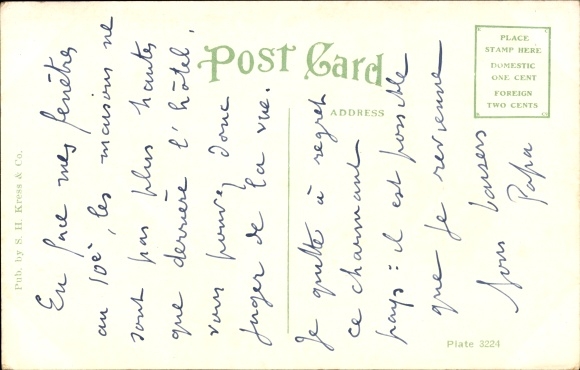 POST CARD
ADDRESS
PLACE
STAMP HERE
DOMESTIC
ONE CENT
FOREIGN
TWO CENTS
Pub. by S. H. Kress & Co.
En face mes fenêtres
au 10è, les maisons ne
sont pas plus hautes
que derrière l'hôtel.
vous pouvez donc
juger de la vue.
Je quitte à regret
ce charmant
pays : il est possible
que je revienne
baisers
Papa
Plate 3224